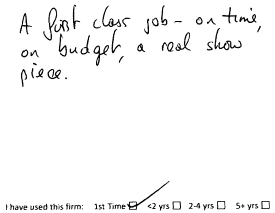 A first class job - on time,
on budget, a real show
piece.
I have used this firm: 1st Time ☑ <2 yrs ☐ 2-4 yrs ☐ 5+ yrs ☐